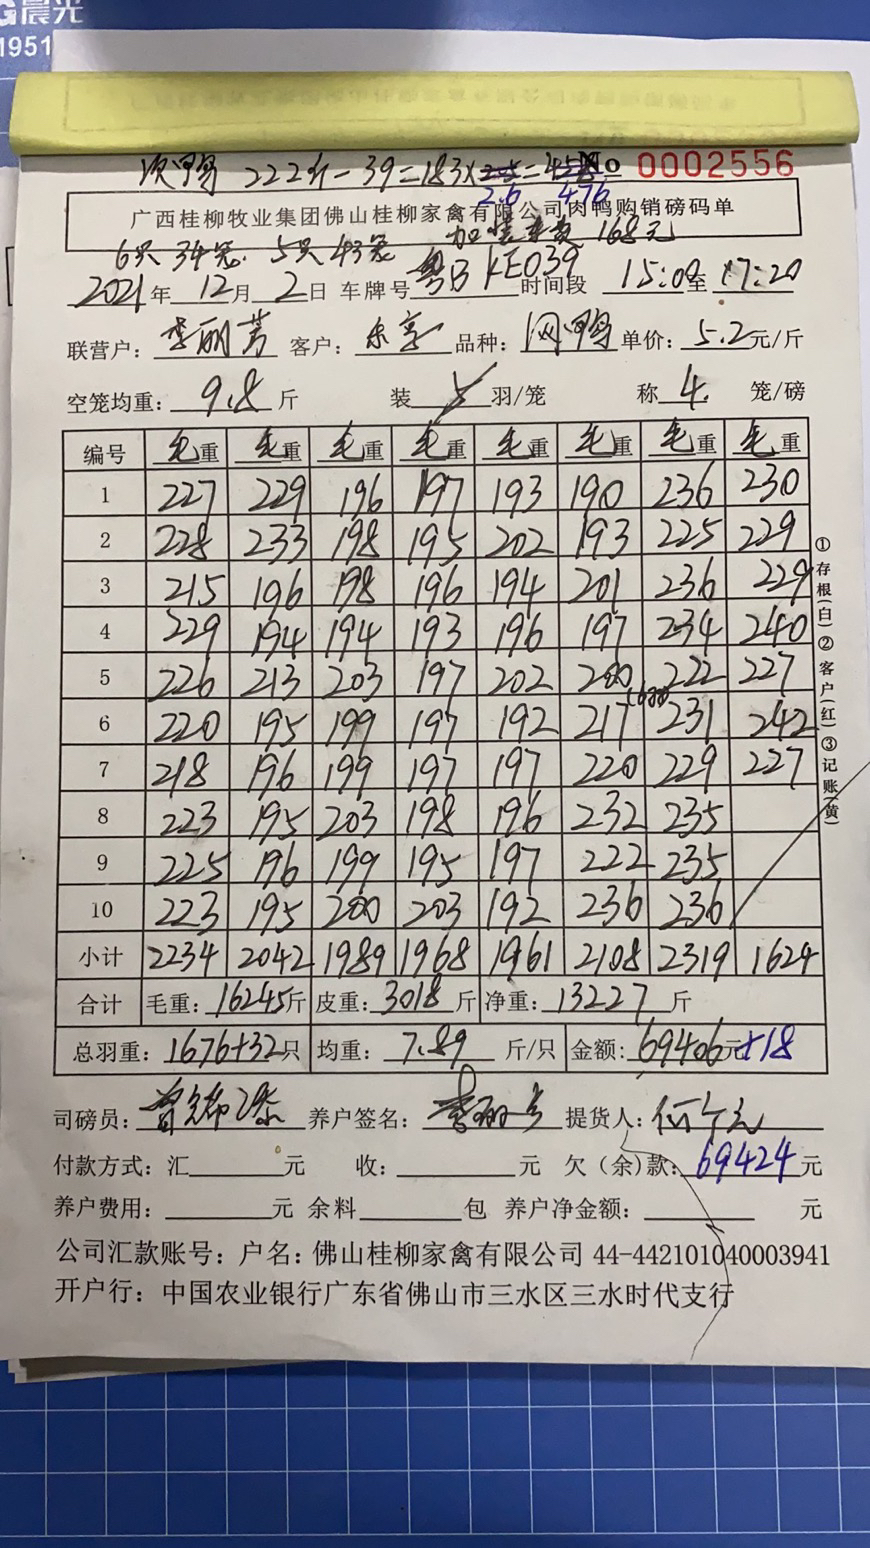 G晨光
1951
次鸭 222斤-39=183×2.5=458
2.6 476
No 0002556
广西桂柳牧业集团佛山桂柳家禽有限公司肉鸭购销磅码单
6只34笼. 5只43笼 加装车费 168元
2021年12月2日 车牌号 粤B KE039 时间段 15:00至17:20
联营户: 李丽芳 客户: 乐享 品种: 网鸭 单价: 5.2元/斤
空笼均重: 9.8斤 装 5 羽/笼 称 4. 笼/磅
编号 毛重 毛重 毛重 毛重 毛重 毛重 毛重 毛重
1 227 229 196 197 193 190 236 230
2 228 233 198 195 202 193 225 229
3 215 196 198 196 194 201 236 229
4 229 194 194 193 196 197 234 240
5 226 213 203 197 202 200 222 227
6 220 195 199 197 192 217 231 242
7 218 196 199 197 197 220 229 227
8 223 195 203 198 196 232 235
9 225 196 199 195 197 222 235
10 223 195 200 203 192 236 236
小计 2234 2042 1989 1968 1961 2108 2319 1624
合计 毛重: 16245斤 皮重: 3018斤 净重: 13227斤
总羽重: 1676+32只 均重: 7.89斤/只 金额: 69406元+18
司磅员: 养户签名: 李丽芳 提货人:
付款方式: 汇 元 收: 元 欠(余)款: 69424元
养户费用: 元 余料 包 养户净金额: 元
公司汇款账号: 户名: 佛山桂柳家禽有限公司 44-442101040003941
开户行: 中国农业银行广东省佛山市三水区三水时代支行
①存根(白)②客户(红)③记账(黄)